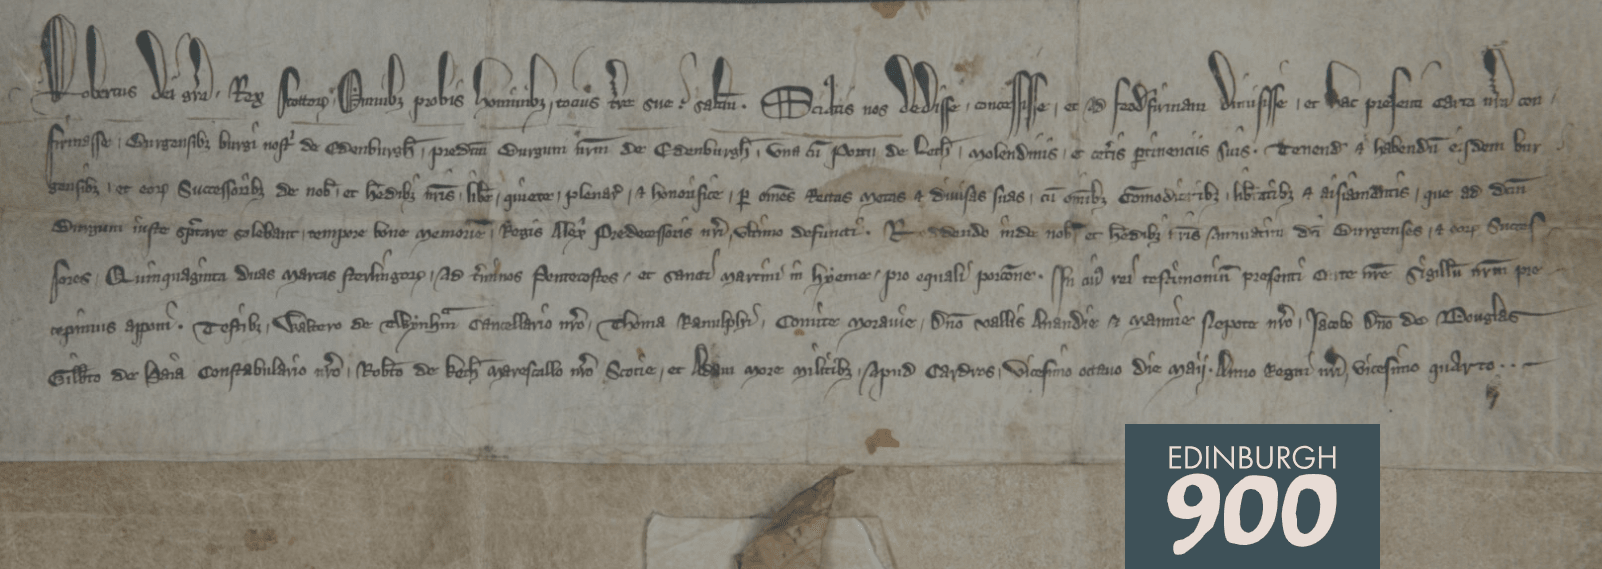 Robertus dei gra Rex Scottorꝝ Omnibꝫ probis hominibꝫ tocius tre sue saltm. Sciatis nos dedisse, concessisse, et ad feodifirmam dimisisse, et hac presenti carta nra con
firmasse, Burgensibꝫ burgi nostri de Edenburgh, predcm Burgum nrm de Edenburgh, una cu Portu de Leth, molendinis, et cetis ptinenciis suis. Tenend et habendu eisdem bur
gensibꝫ, et eorꝝ Successoribꝫ de nob et hedibꝫ nris, libe, quiete, plenar, et honorifice, p omes Rectas metas et divisas suas, cu omibꝫ Comoditatibꝫ, libtatibꝫ et aisiamentis, que ad dcm
Burgum iuste sptare solebant, tempore bone memorie, Regis Alexi Predecessoris nri, ultimo defuncti. Reddendo inde nob et hedibꝫ nris annuatim dci Burgenses, et eorꝝ Succes
sores, Quinquaginta duas marcas sterlingorꝝ, ad tminos Pentecostes, et sancti martini in hyeme, pro equali porcone. In cui rei testimoniu presenti carte nre Sigillu nrm pre
cepimus apponi. Testibꝫ, Waltero de Twynhm Cancellario nro, Thoma Ranulphi, Comite moravie, dno vallis Anandie et mannie Nepote nro, Jacobo dno de Douglas
Gilbto de Haia Constabulario nro, Robto de keth marescallo nro Scocie, et Adam more militibꝫ, Apud Cardros, vicesimo octavo die maij. Anno Regni nri, vicesimo quarto..
EDINBURGH
900